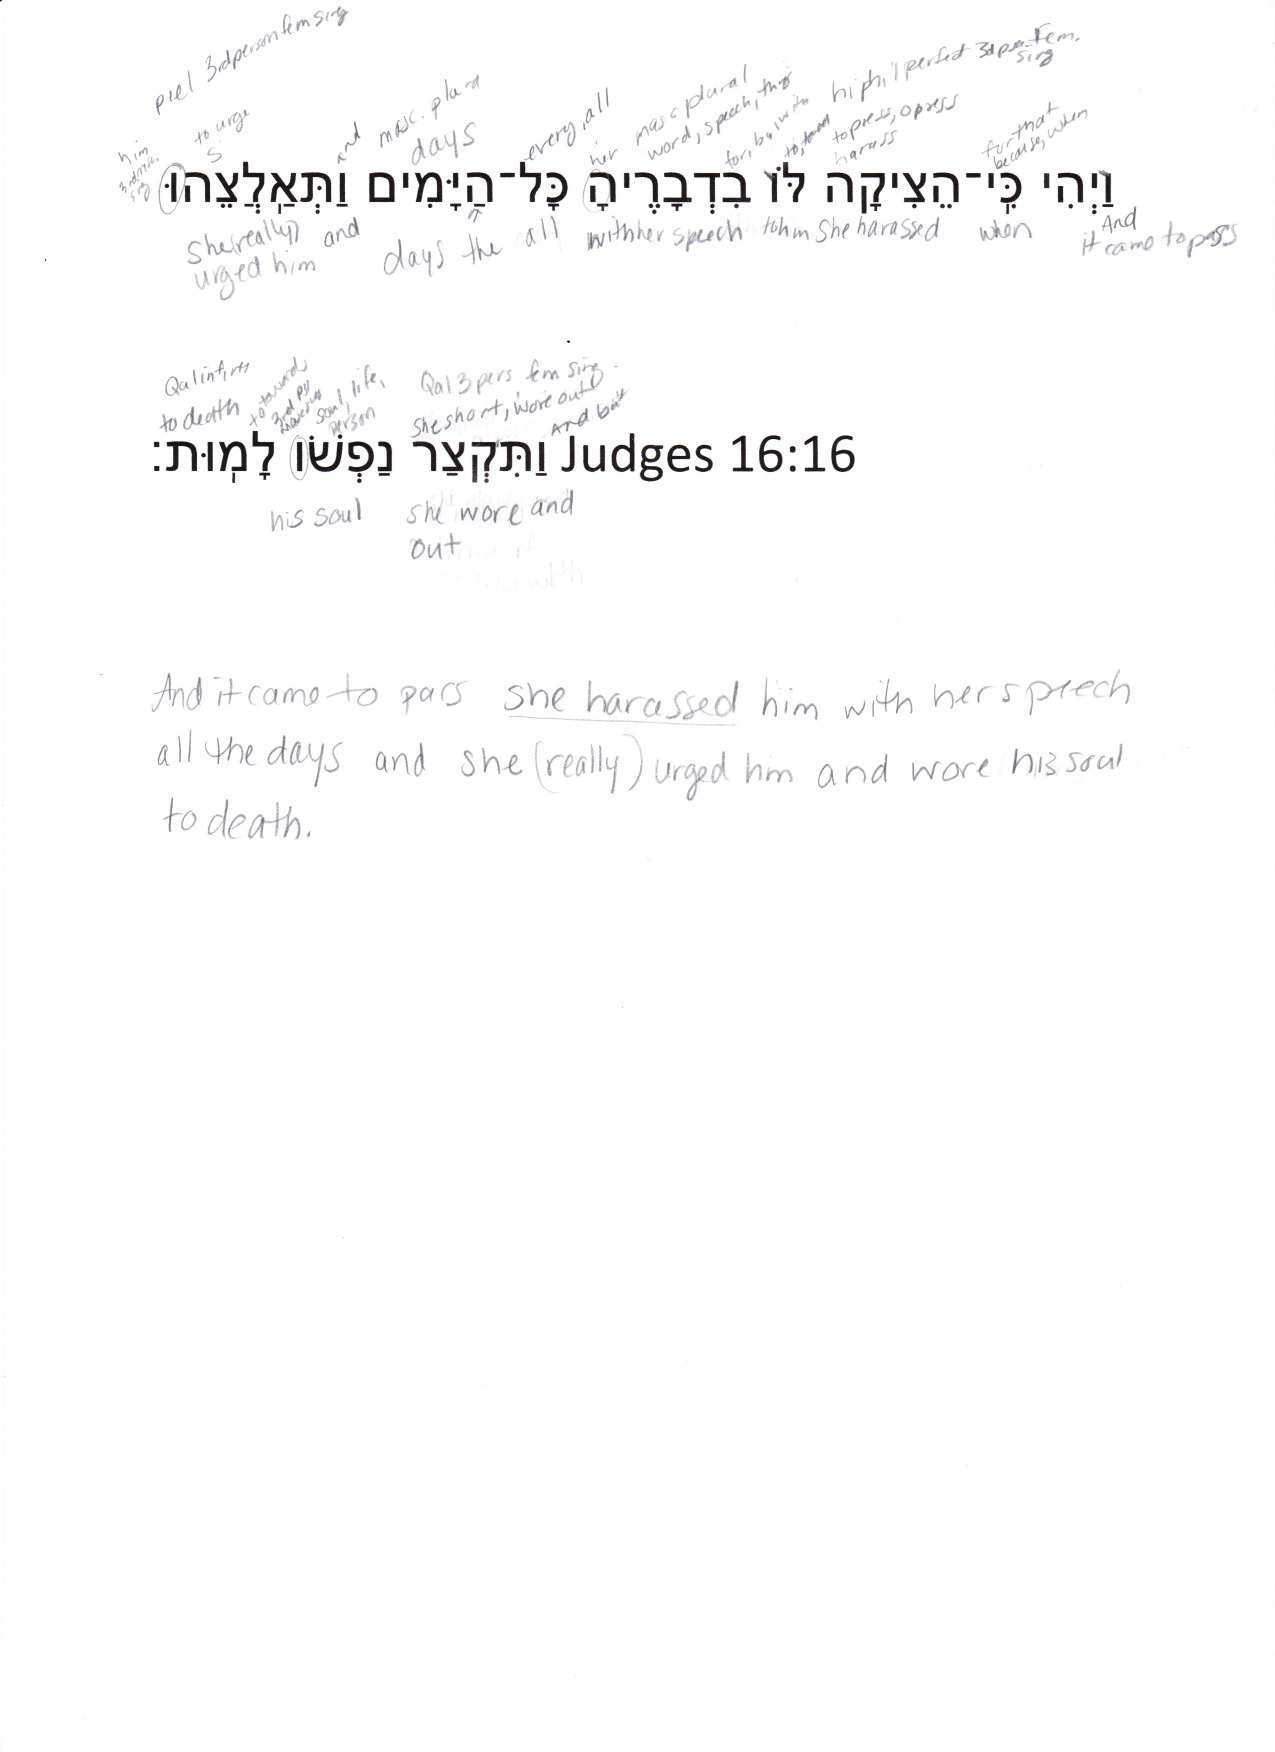 piel 3rd person fem sing
him
3rd masc.
sing
to urge
and
masc. plural
days
every, all
her
masc plural
word, speech, thing
for, by, with
to, toward
hiph'il perfect 3d per Fem.
sing
to press, opress
harass
for, that
because, when
וַיְהִי כִּֽי־הֵצִיקָה לּוֹ בִדְבָרֶיהָ כָּל־הַיָּמִים וַתְּאַֽלֲצֵהוּ
she (really)
urged him
and
days the all
with her speech
to him
she harassed
when
And
it came to pass
Qal infin
to death
to towards
3rd ps
soul, life,
person
Qal 3 pers fem sing.
she short, wore out
And but
וַתִּקְצַר נַפְשׁוֹ לָמֽוּת׃ Judges 16:16
his soul
she wore and
out
And it came to pass she harassed him with her speech
all the days and she (really) urged him and wore his soul
to death.